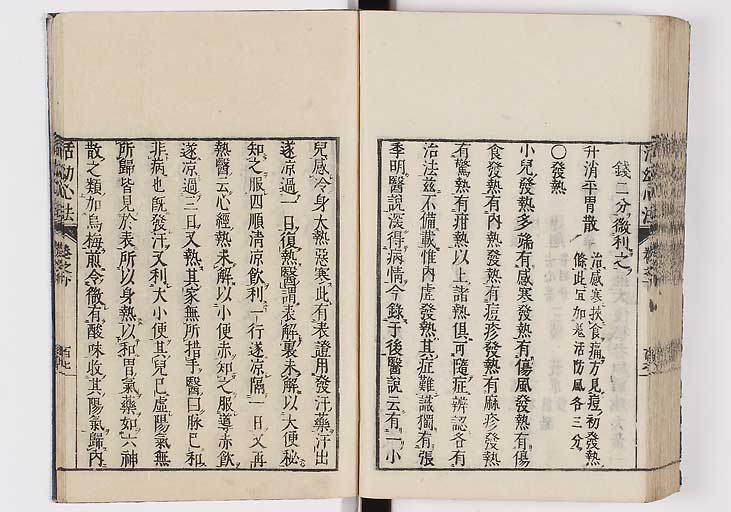 錢二分微利之
升消平胃散 治感寒挾食痛方見痘初發熱
條此宜加羌活防風各三分
〇發熱
小兒發熱多端有感寒發熱有傷風發熱有傷
食發熱有內熱發熱有痘疹發熱有麻疹發熱
有驚熱有疳熱以上諸熱俱可隨症辨認各有
治法茲不備載惟內虛發熱其症難識獨有張
季明醫說深得病情今錄于後醫說云有一小
兒感冷身大熱惡寒此有表證用發汗藥汗出
遂凉過一日復熱醫謂表解裏未解以大便秘
知之服四順清凉飲利一行遂凉隔一日又再
熱醫云心經熱未解以小便赤知之服導赤飲
遂凉過三日又熱其家無所措手醫曰脉已和
非病也旣發汗又利大小便其兒已虛陽氣無
所歸皆見於表所以身熱以和胃氣藥如六神
散之類加烏梅煎令微有酸味收其陽氣歸內
活幼心法